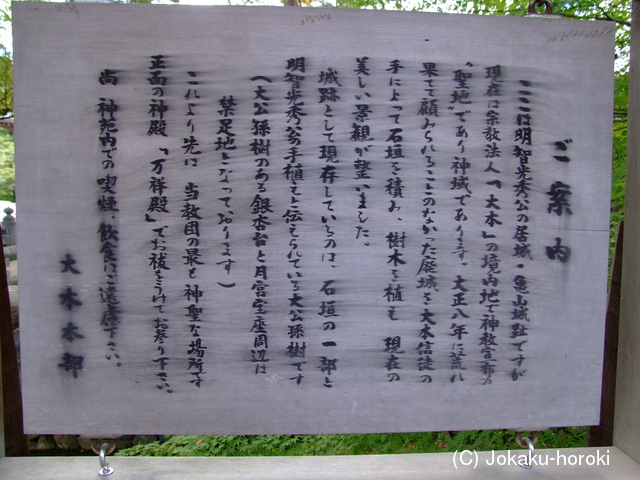 ご案内
ここは明智光秀公の居城・亀山城趾ですが
現在は宗教法人「大本」の境内地で神教宣布の
聖地であり神域であります。大正八年に荒れ
果てて顧みられることのなかった廃城を大本信徒の
手によって石垣を積み、樹木を植え 現在の
美しい景観が整いました。
城跡として現存しているのは、石垣の一部と
明智光秀公の手植えと伝えられている大公孫樹です
(大公孫樹のある銀杏台と月宮宝座周辺は
禁足地となっております)
これより先は 当教団の最も神聖な場所です
正面の神殿「万祥殿」でお祓をうけてお参り下さい。
尚 神苑内での喫煙、飲食はご遠慮下さい。
大本本部
(C) Jokaku-horoki